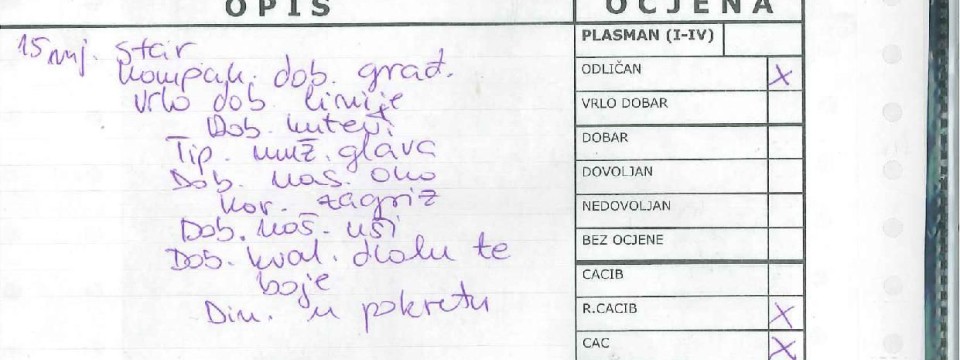 OPIS
15 mj. star
kompak. dob. građ.
vrlo dob. linije
Dob. kutevi
Tip. muž. glava
Dob. nos. oko
kor. zagriz
Dob. noš. uši
Dob. kval. dlake te
boje
Din. u pokretu
OCJENA
PLASMAN (I-IV)
ODLIČAN X
VRLO DOBAR
DOBAR
DOVOLJAN
NEDOVOLJAN
BEZ OCJENE
CACIB
R.CACIB X
CAC X